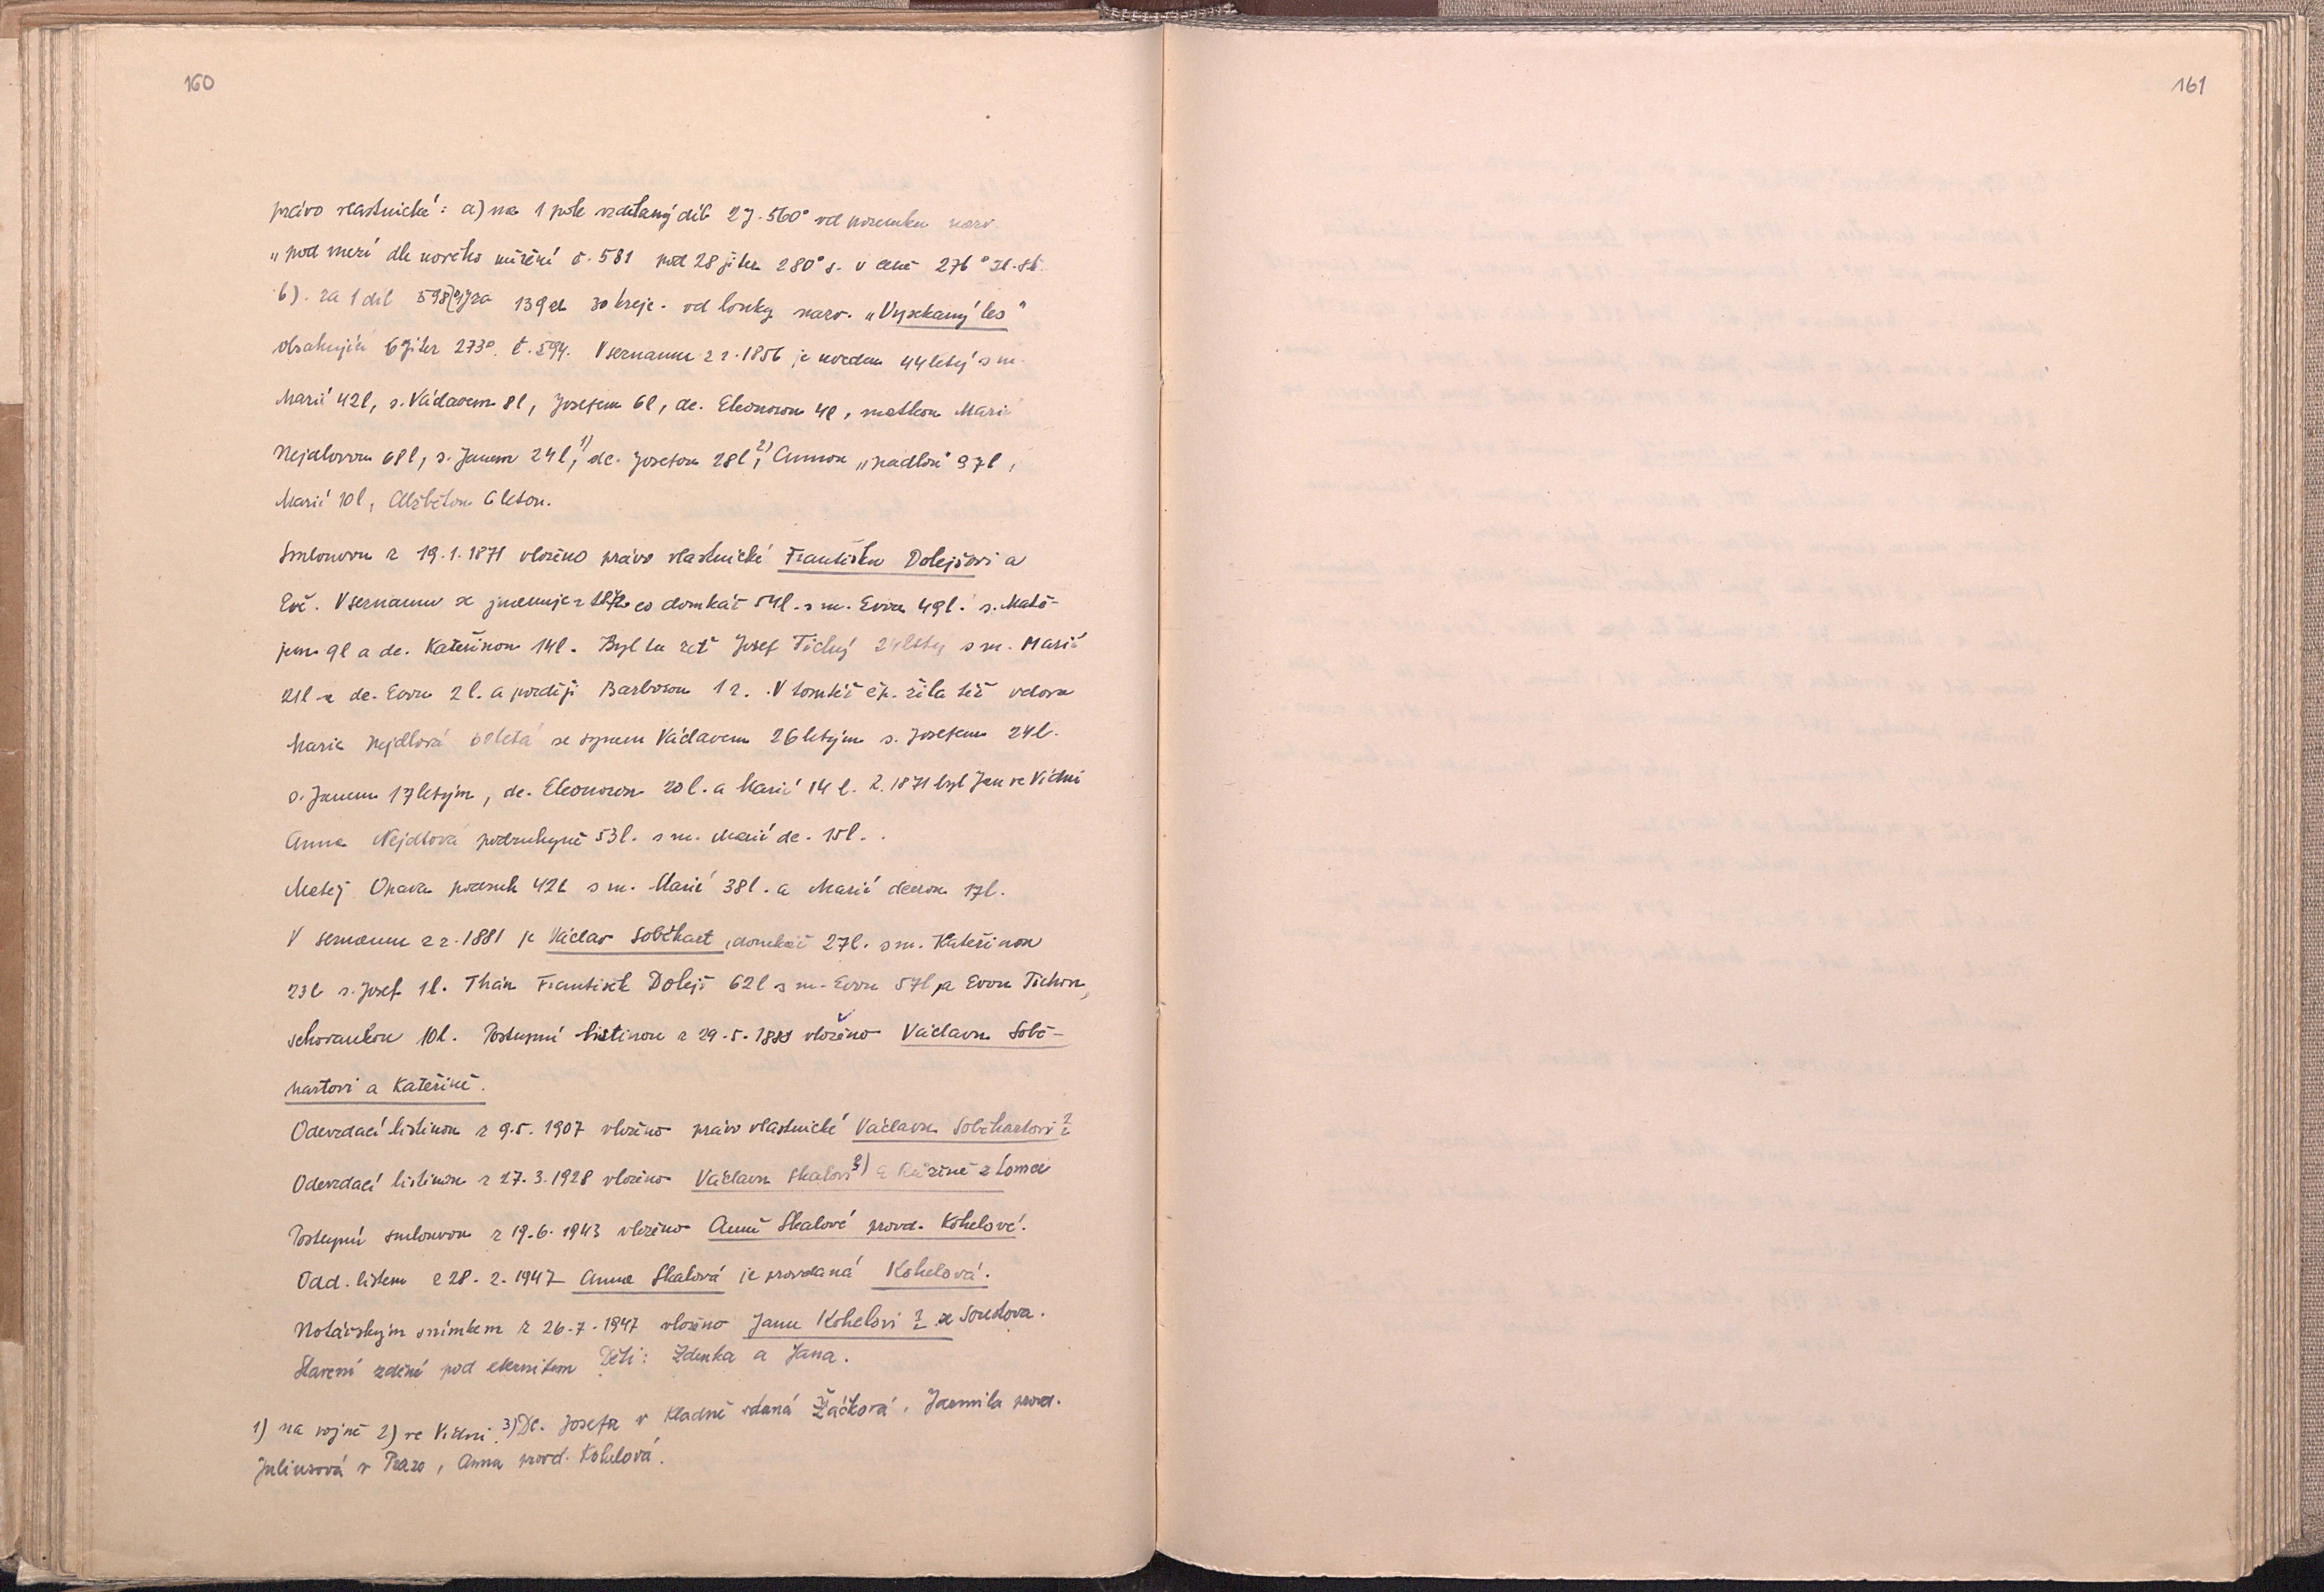 160
161
právo vlastnické: a) na 1 pole vzdělaný díl 2J. 560° od pozemku nazv.
„pod mezí dle nového měření č. 581 pod 28 jiter 280° s. v ceně 276° zl. st.
b). za 1 díl 139 zl 30 krejc. od louky nazv. „Vysekaný les"
obsahující 6 jiter 273°. č. 594. V seznamu z r. 1856 je uveden 44letý s m.
Marií 42l, s. Václavem 8l, Josefem 6l, dc. Eleonorou 4l, matkou Marií
Nejdlovou 68l, s. Janem 24l,1) dc. Josefou 28l,2) Annou 37l,
Marií 10l, Alžbětou 6letou.
Smlouvou z 19.1.1871 vloženo právo vlastnické Františku Dolejšovi a
Evě. V seznamu se jmenuje co domkář 54l. s m. Evou 49l. s. Matě-
jem 9l a dc. Kateřinou 14l. Byl tu zeť Josef Tichý 24letý s m. Marií
21l a dc. Evou 2l. a později Barborou 1 r. V tomtéž čp. žila též vdova
Marie Nejdlová se synem Václavem 26letým s. Josefem 24l.
s. Janem 17letým, dc. Eleonorou 20l. a Marií 14 l. R. 1871 byl Jan ve Vídni
Anna Nejdlová podruhyně 53l. s m. Marií dc. 15l.
Matěj Opava podruh 42l s m. Marií 38l. a Marií dcerou 17l.
V seznamu z r. 1881 je Václav Soběhart, domkář 27l. s m. Kateřinou
23l s. Josef 1l. Tchán František Dolejš 62l s m. Evou 57l a Evou Tichou,
schovankou 10l. Postupní listinou z 29.5.1880 vloženo Václavu Sobě-
hartovi a Kateřině.
Odevzdací listinou z 9.5. 1907 vloženo právo vlastnické Václavu Soběhartovi 2
Odevzdací listinou z 27.3.1928 vloženo Václavu Skalovi3) a Růžině z Lomce
Postupní smlouvou z 19.6.1943 vloženo Anně Skalové provd. Kohelové.
Odd. listem z 28. 2. 1947 Anna Skalová je provdaná Kohelová.
Notářským snímkem z 26.7.1947 vloženo Janu Kohelovi 2 ze Soustova.
Stavení zděné pod eternitem Děti: Zdenka a Jana.
1) na vojně 2) ve Vídni. 3) Dc. Josefa v Kladně vdaná Žáčková, Jarmila provd.
Juliusová v Praze, Anna provd. Kohelová.